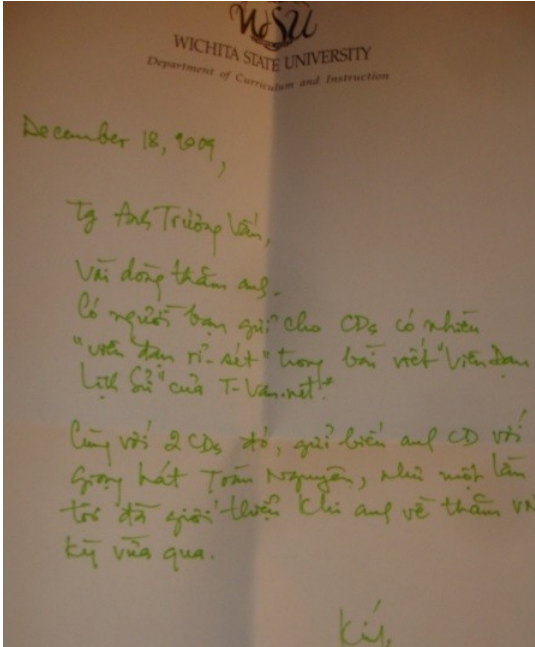 WSU
WICHITA STATE UNIVERSITY
Department of Curriculum and Instruction
December 18, 2009,
Tg Anh Trương Văn,
Vài dòng thăm anh.
Có người bạn gửi cho CDs có nhiều
"viên đạn rỉ-sét" trong bài viết "Viên Đạn
Lịch Sử" của T-Van.net!
Cùng với 2 CDs đó, gửi biếu anh CD với
giọng hát Toàn Nguyễn, như một lần
tôi đã giới thiệu khi anh về thăm VN
kỳ vừa qua.
Kính,